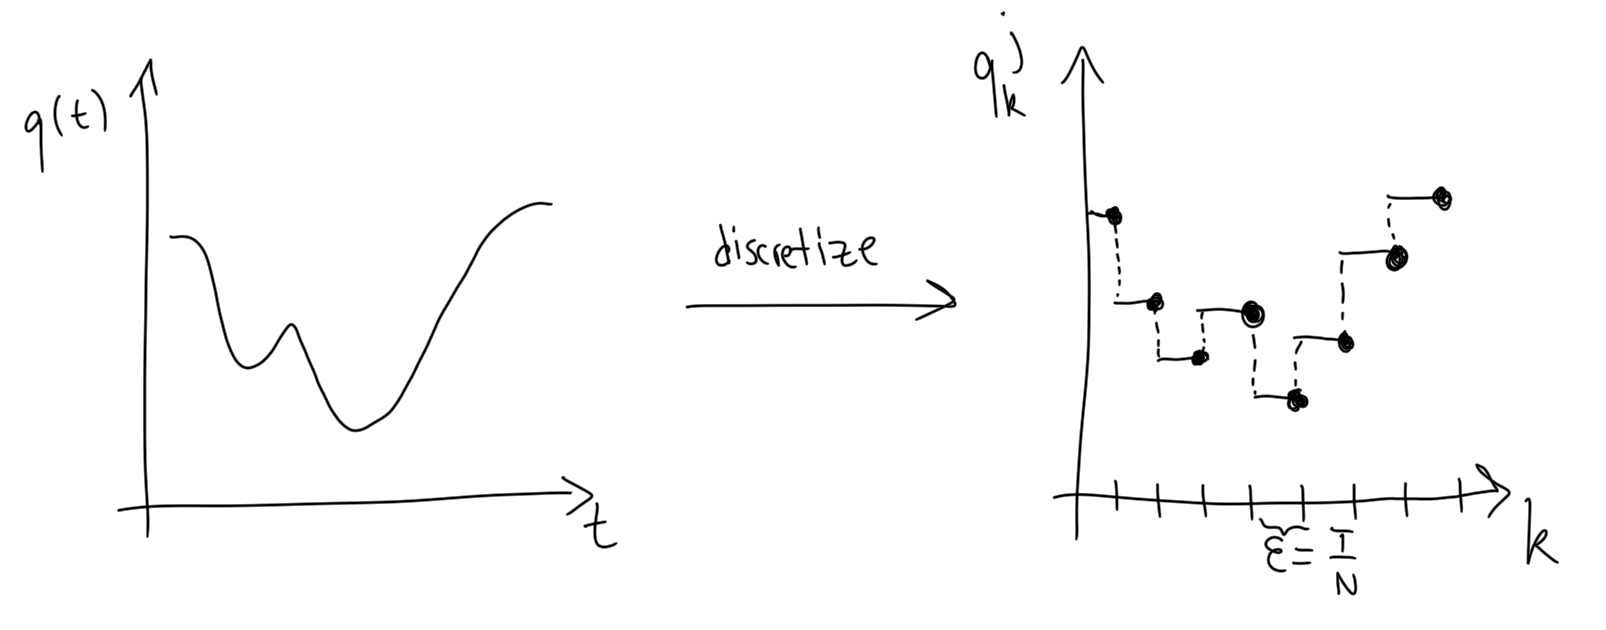 q(t)
t
discretize
q_k^j
k
ε = T/N